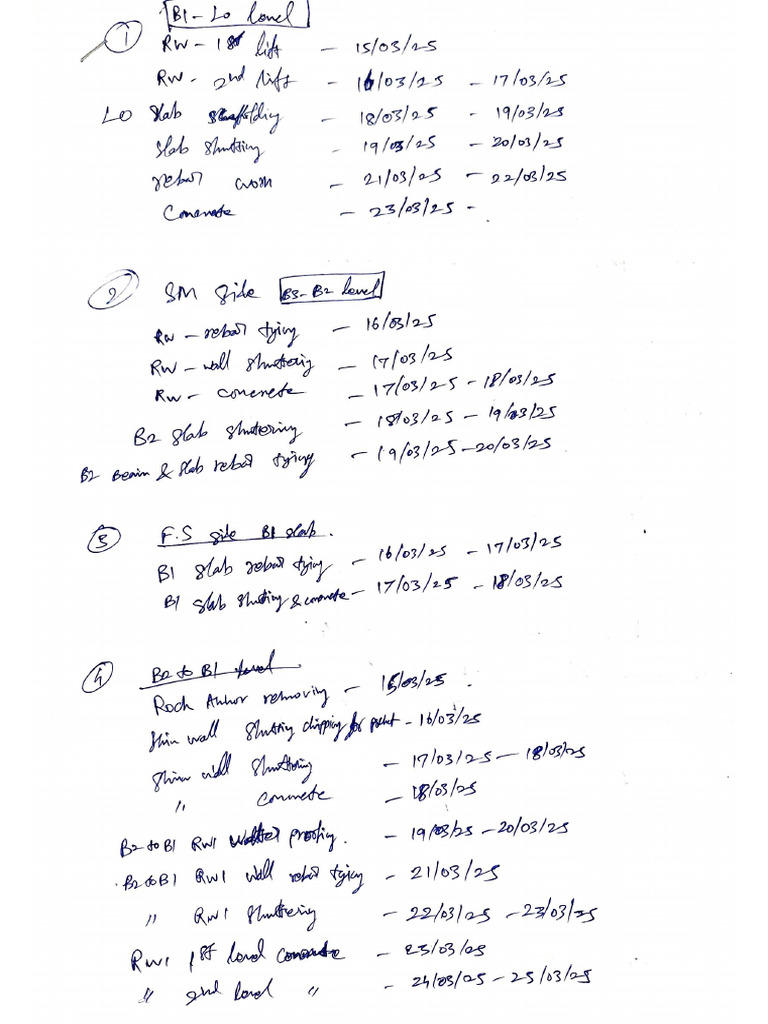 ① B1 - L0 level
RW - 1st lift - 15/03/25
RW - 2nd lift - 16/03/25 - 17/03/25
L0 slab scaffolding - 18/03/25 - 19/03/25
slab shutting - 19/03/25 - 20/03/25
rebar work - 21/03/25 - 22/03/25
Concrete - 23/03/25 -
② SM side B3-B2 level
RW - rebar tying - 16/03/25
RW - wall shuttering - 17/03/25
RW - concrete - 17/03/25 - 18/03/25
B2 slab shuttering - 18/03/25 - 19/03/25
B2 Beam & slab rebar tying - 19/03/25 - 20/03/25
③ F.S side B1 slab.
B1 slab rebar tying - 16/03/25 - 17/03/25
B1 slab shutting & concrete - 17/03/25 - 18/03/25
④ B2 to B1 level
Rock Anhor removing - 15/03/25.
shin wall shutting chipping for - 16/03/25
shin wall shuttering - 17/03/25 - 18/03/25
" concrete - 18/03/25
B2 to B1 RW1 water proofing. - 19/03/25 - 20/03/25
B2 to B1 RW1 wall rebar tying - 21/03/25
" RW1 shuttering - 22/03/25 - 23/03/25
RW1 1st level concrete - 23/03/25
" 2nd level " - 24/03/25 - 25/03/25